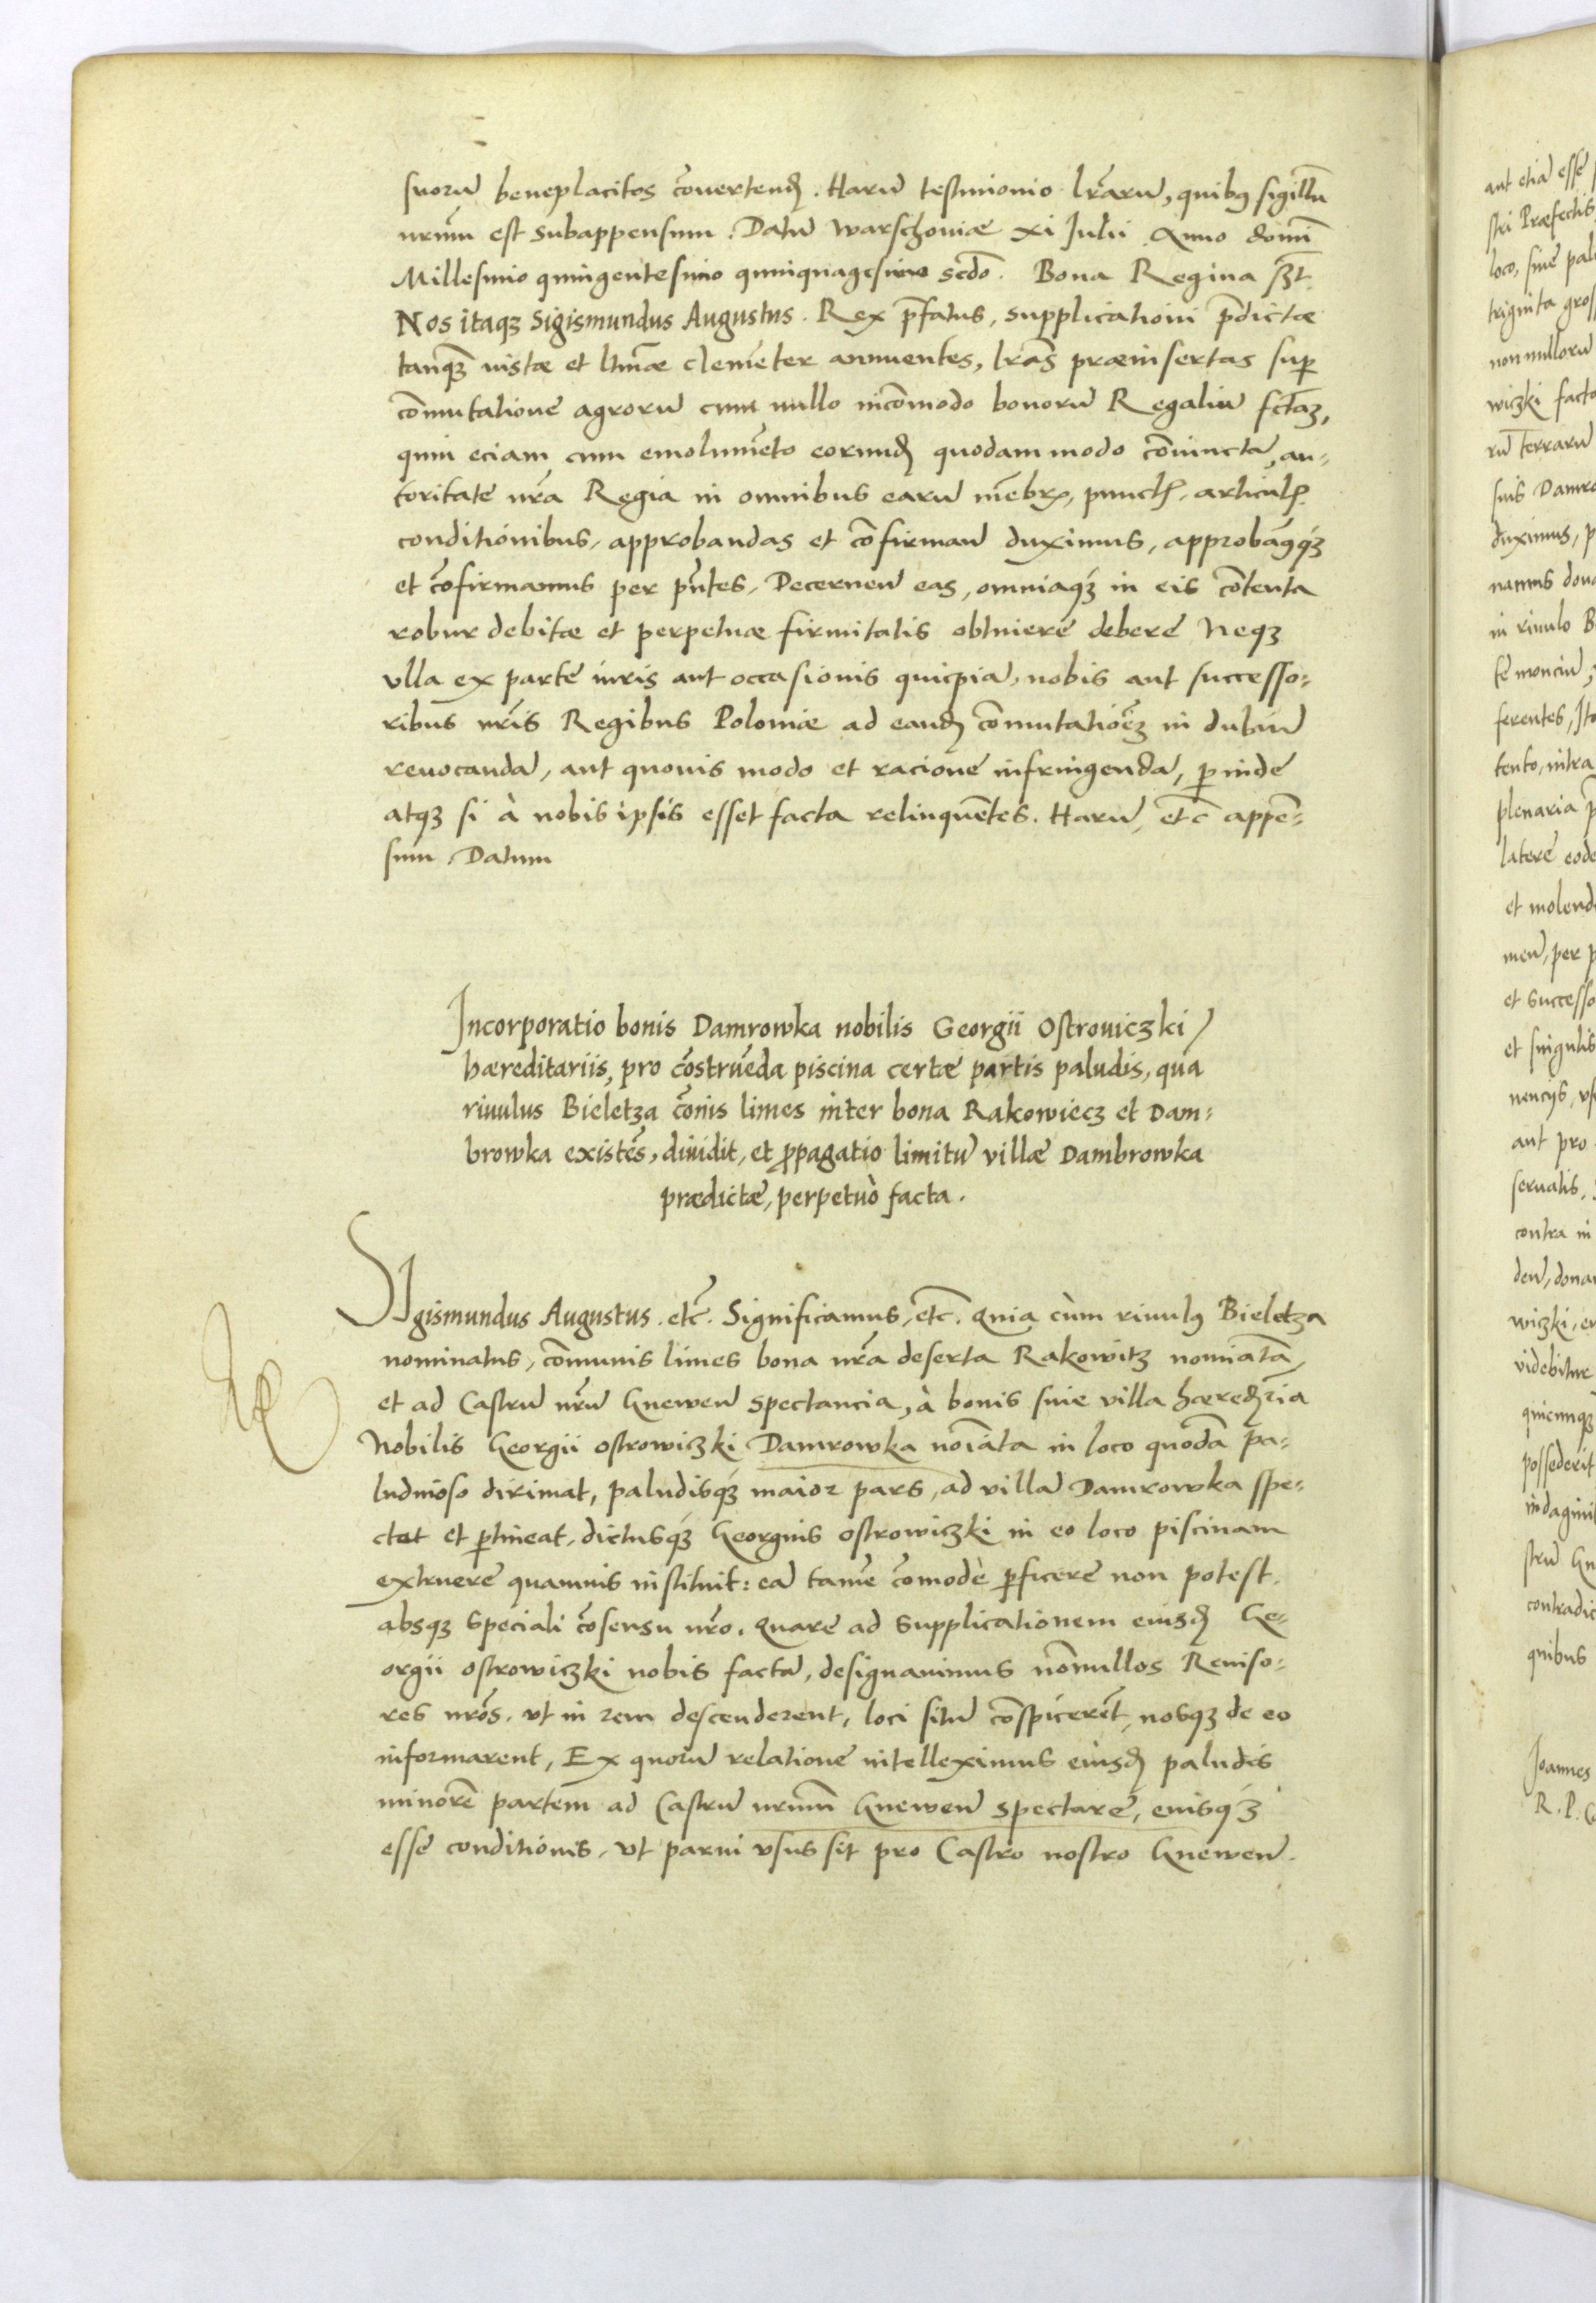 suorũ beneplacitos cõuertenđ. Harũ testimonio lr̃arũ, quibꝯ sigillũ
nr̃um est subappensum. Datũ Warschouiæ xi Julii Anno domĩ
Millesimo quingentesimo quinquagesimo scdo. Bona Regina sszt.
Nos itaqꝫ Sigismundus Augustus. Rex p̃fatus, supplicationi p̃dictæ
tanqꝫ iustæ et ltimæ clemẽter annuentes, lr̃as præinsertas suꝑ
cõmutatione agrorũ cum nullo incõmodo bonorũ Regaliũ fctaꝫ,
quin eciam cum emolumẽto eorunđ quodammodo cõiuncta, au-
toritate nr̃a Regia in omnibus earũ mẽbr̃, punctꝭ, articulꝭ
conditionibus, approbandas et cõfirmañ duximus, approbamꝯqꝫ
et cõfirmamus per pñtes, Decerneñ eas, omniaqꝫ in eis cõtenta
robur debitæ et perpetuæ firmitatis obtinere debere Neqꝫ
vlla ex parte iuris aut occasionis quicpiã, nobis aut successo-
ribus nr̃is Regibus Poloniæ ad eanđ cõmutatiõeꝫ in dubiũ
reuocandã, aut quouis modo et racione infringendã, ꝑinde
atqꝫ si à nobis ipsis esset facta relinquẽtes. Harũ, etc̃ appẽ-
sum. Datum
Incorporatio bonis Damrowka nobilis Georgii Ostrouiczki
hæreditariis, pro cõstruẽda piscina certæ partis paludis, qua
riuulus Bieletza cõnis limes inter bona Rakowiecz et Dam-
browka existẽs, diuidit, et ꝓpagatio limitũ villæ Dambrowka
prædictæ, perpetuò facta.
Sigismundus Augustus. etc̃. Significamus, etc̃. Quia cùm riuulꝯ Bieletza
nominatus, cõmunis limes bona nr̃a deserta Rakowitz nomiatã,
et ad Castrũ nr̃ũ Gneweñ spectancia, à bonis siue villa hæređria
Nobilis Georgii Ostrowiczki Damrowka noiãta in loco quodã pa-
ludinoso dirimat, paludisqꝫ maior pars, ad villã Damrowka spe-
ctet et ꝑtineat, dictusqꝫ Georgius Ostrowiczki in eo loco piscinam
extruere quamuis instituit: eã tamẽ cõmodè ꝑficere non potest.
absqꝫ speciali cõsensu nr̃o. Quare ad supplicationem eiusđ Ge-
orgii Ostrowiczki nobis factã, designauimus nõnullos Reuiso-
res nr̃os, vt in rem descenderent, loci sitũ cõspicerẽt, nosqꝫ de eo
informarent, Ex quorũ relatione intelleximus eiusđ paludis
minorẽ partem ad Castrũ nr̃um Gneweñ spectare, eiusqꝫ
esse conditionis, vt parui vsus sit pro Castro nostro Gneweñ.
aut etiã esse
stri Præfectis
loco, siue
triginta
non nullorũ
wiczki facto
rũ terrarũ
suis
duximus,
namus
in riuulo B
ferentes,
tento, intra
plenaria
latere
et
meñ, per
et successo
et singulis
nencijs,
aut pro
seruatis,
contra in
deñ,
wiczki,
videbitur
quicunqꝫ
possederit
indagini
strũ
quibus
Joannes
R. P.